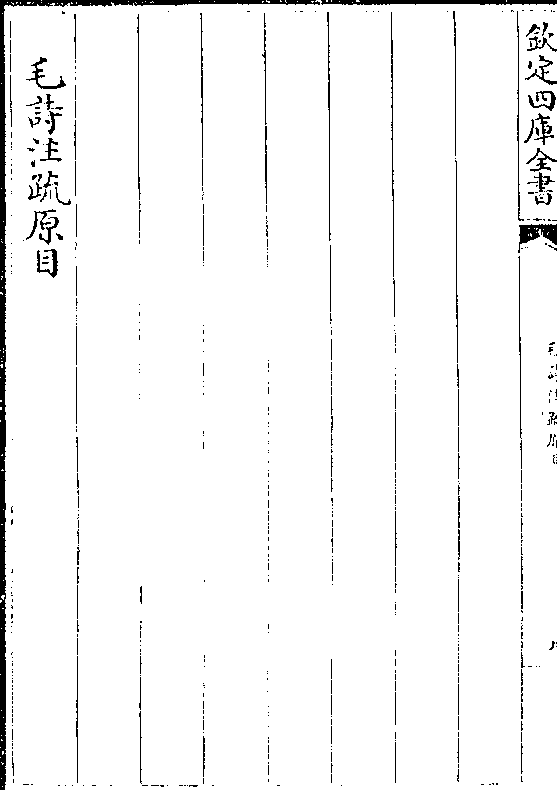 欽定四庫全書
毛詩注疏原目
毛詩注疏原目